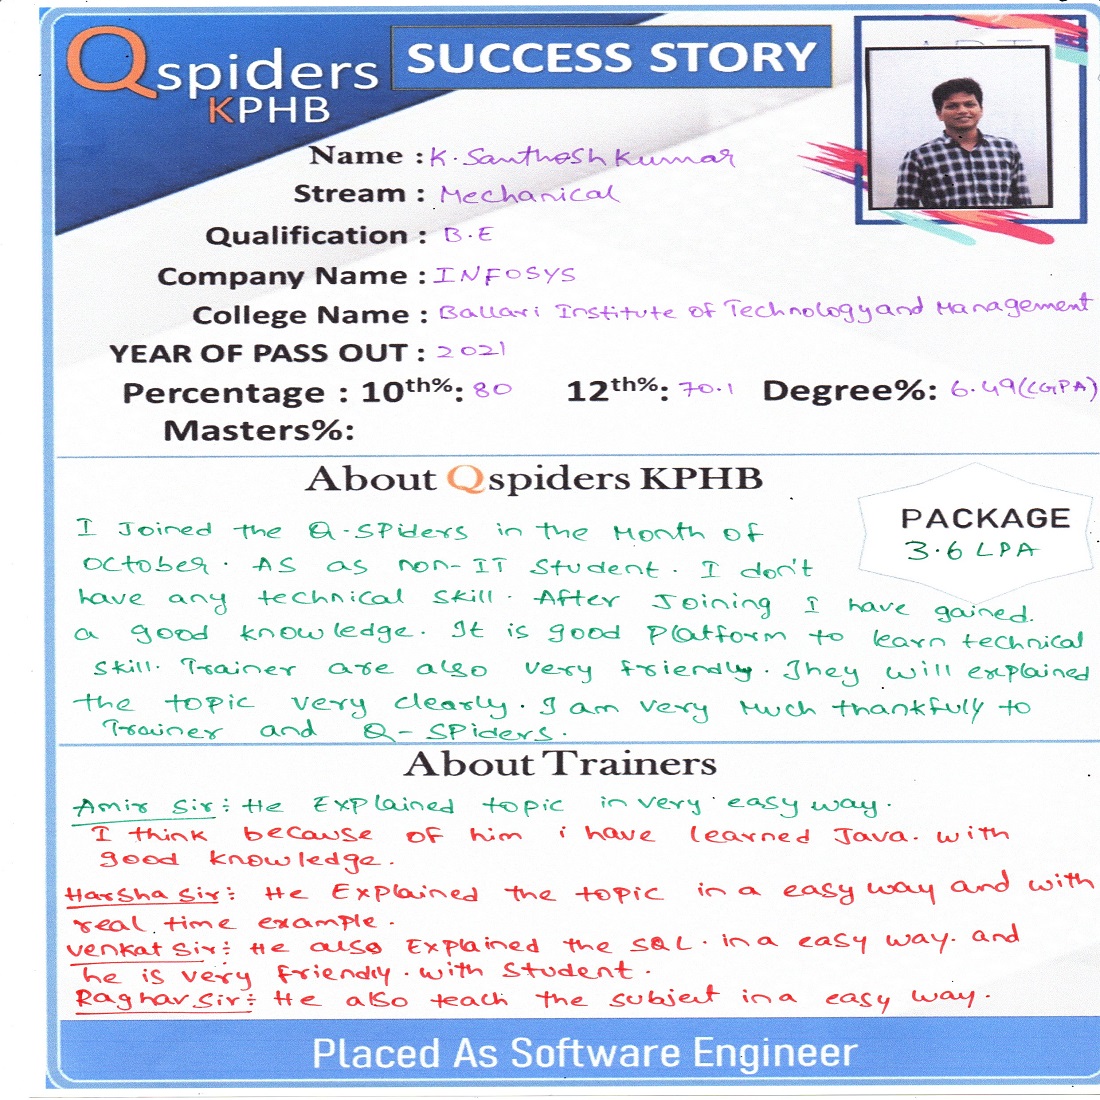 Qspiders
KPHB
SUCCESS STORY
Name : K. Santhosh Kumar
Stream : Mechanical
Qualification : B.E
Company Name : INFOSYS
College Name : Ballari Institute of Technology and Management
YEAR OF PASS OUT : 2021
Percentage : 10th%: 80 12th%: 70.1 Degree%: 6.49(CGPA)
Masters%:
About Qspiders KPHB
PACKAGE
3.6 LPA
I Joined the Q-SPiders in the Month of
October. AS as non-IT Student. I don't
have any technical skill. After Joining I have gained.
a good knowledge. It is good Platform to learn technical
skill. Trainer are also very friendly. They will explained
the topic very clearly. I am very Much thankfully to
Trainer and Q-SPiders.
About Trainers
Amir Sir: He Explained topic in very easy way.
I think because of him i have learned Java. with
good knowledge.
Harsha Sir: He Explained the topic in a easy way and with
real time example.
Venkat Sir: He also Explained the SQL. in a easy way. and
he is very friendly. with Student.
Raghav Sir: He also teach the subject in a easy way.
Placed As Software Engineer